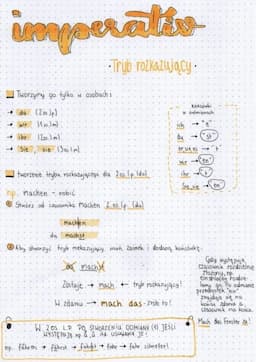 imperativ
· Tryb rozkazujący ·
Tworzymy go tylko w osobach:
→ du (2os.lp)
→ wir (1os.lm)
→ ihr (2os.lm)
→ Sie, sie (3os.lm)
Końcówki
w odmianach
ich → "e"
du → "st"
er, sie, es → "t"
wir → "en"
ihr → "t"
Sie, sie → "en"
tworzenie trybu rozkazującego dla 2os.lp. (du)
np. machen - robić
① Stwórz od czasownika Machen 2.os.lp. (du)
machen
du machst
② Aby stworzyć tryb rozkazujący usuń zaimek i dodaną końcówkę.
du machst
Zostaje → mach ← tryb rozkazujący!
W zdaniu → mach das - zrób to!
Gdy występuje
czasownik rozdzielnie
złożony, np.
znajduje się na
końcu zdania
Mach das Fenster
W 2os. L.P. PO STWORZENIU ODMIANY JEŚLI
np. fahren → fährst → fahr schneller!